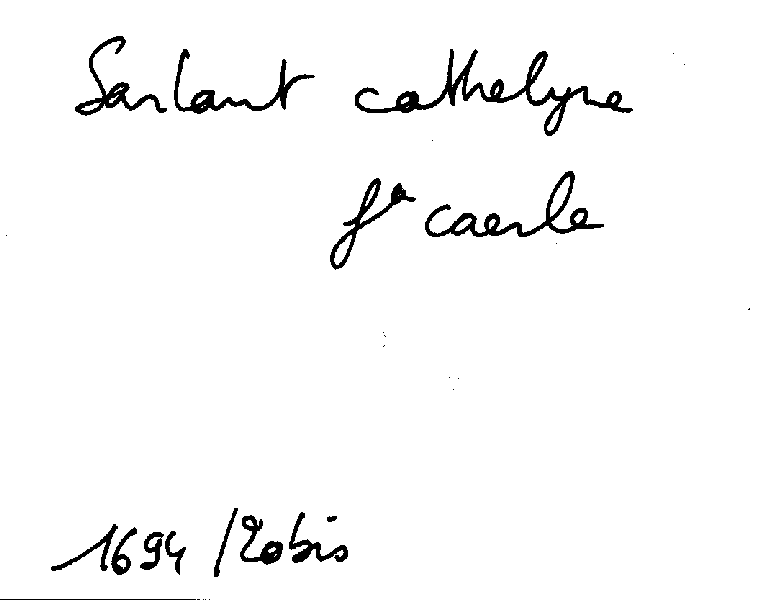 Sarlaut cathelyne
fª caerle
1694 / 20bis